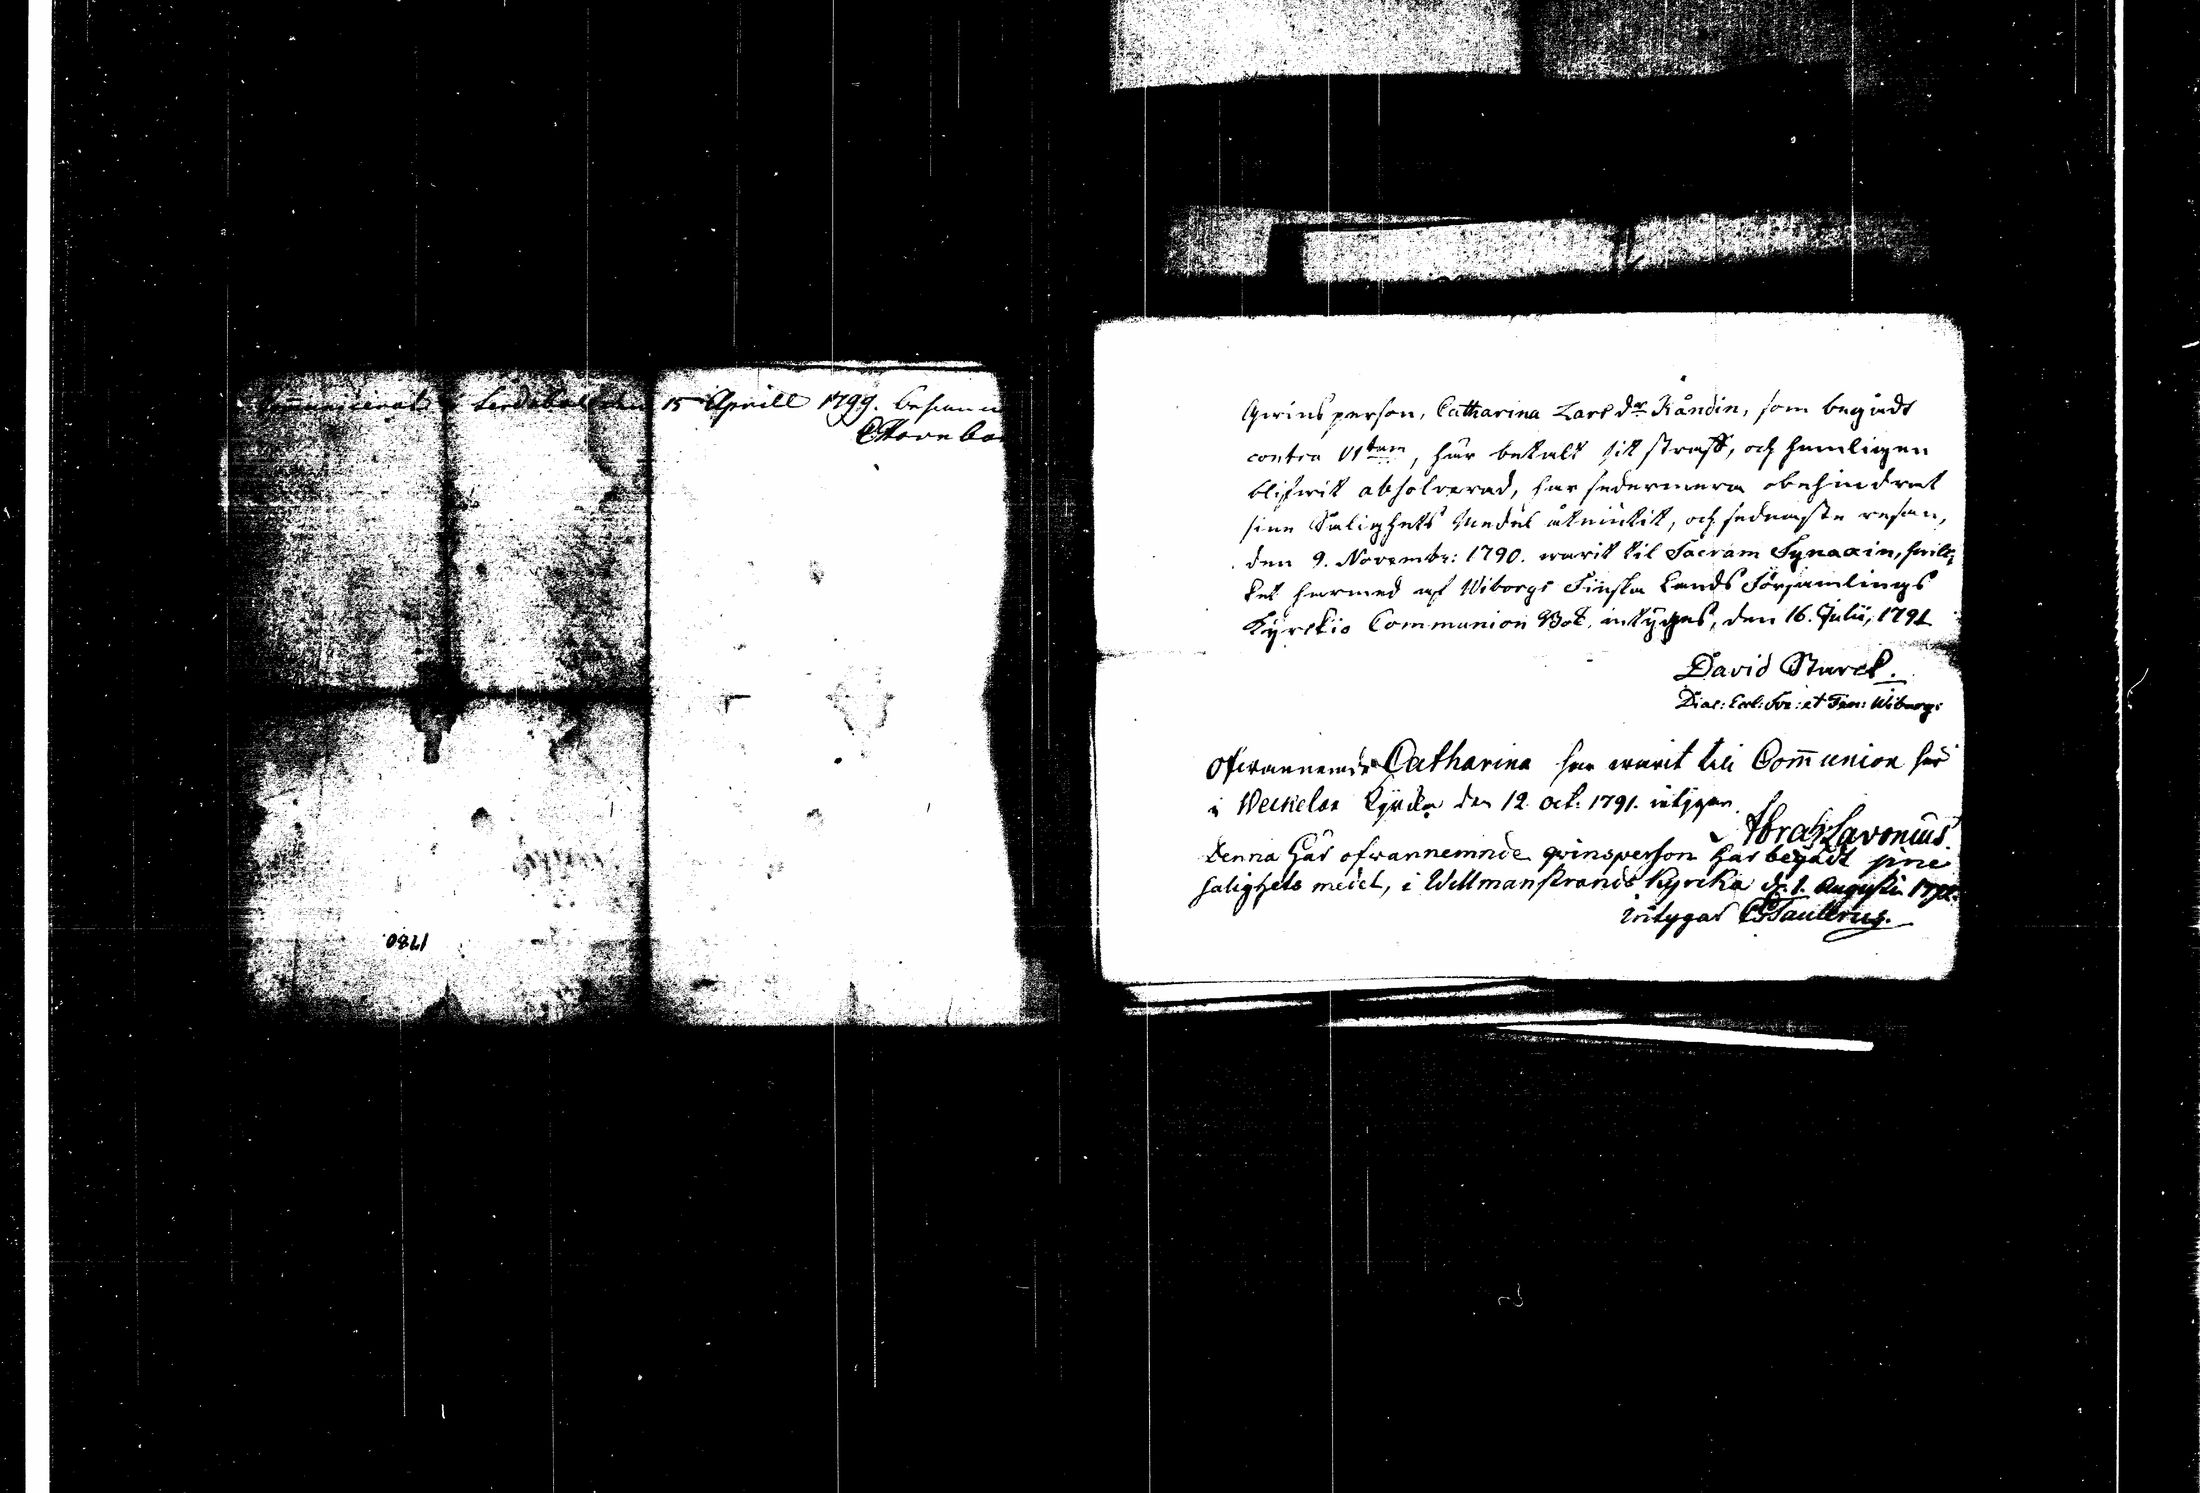 15 Aprill 1799.
1780.
Qwins person, Catharina Lars dr Råndin, som begådt
contra VItum, har betalt sit straff, och hemligen
blifwit absolverad, har sedermera obehindrat
sine Salighets Medel åtniutit, och sednaste resan,
den 9. Novembr: 1790. warit til Sacram Synaxin, hwil-
ket hermed af Wiborgs Finska Lands Församlings
Kyrckio Communion Bok, intyges, den 16. Julii, 1791
David Starck.
Diac: Eccl: Sve: et Fen: Wiburg:
Ofwannemde Catharina har warit till Com̅union här
i Weckelax Kyrcka den 12. oct: 1791. intygar
Abrah Lavonius.
Denna här ofwannemnde qwinsperson har begådt sine
salighets medel, i Willmanstrands Kyrcka d. 1. Augusti
intygar